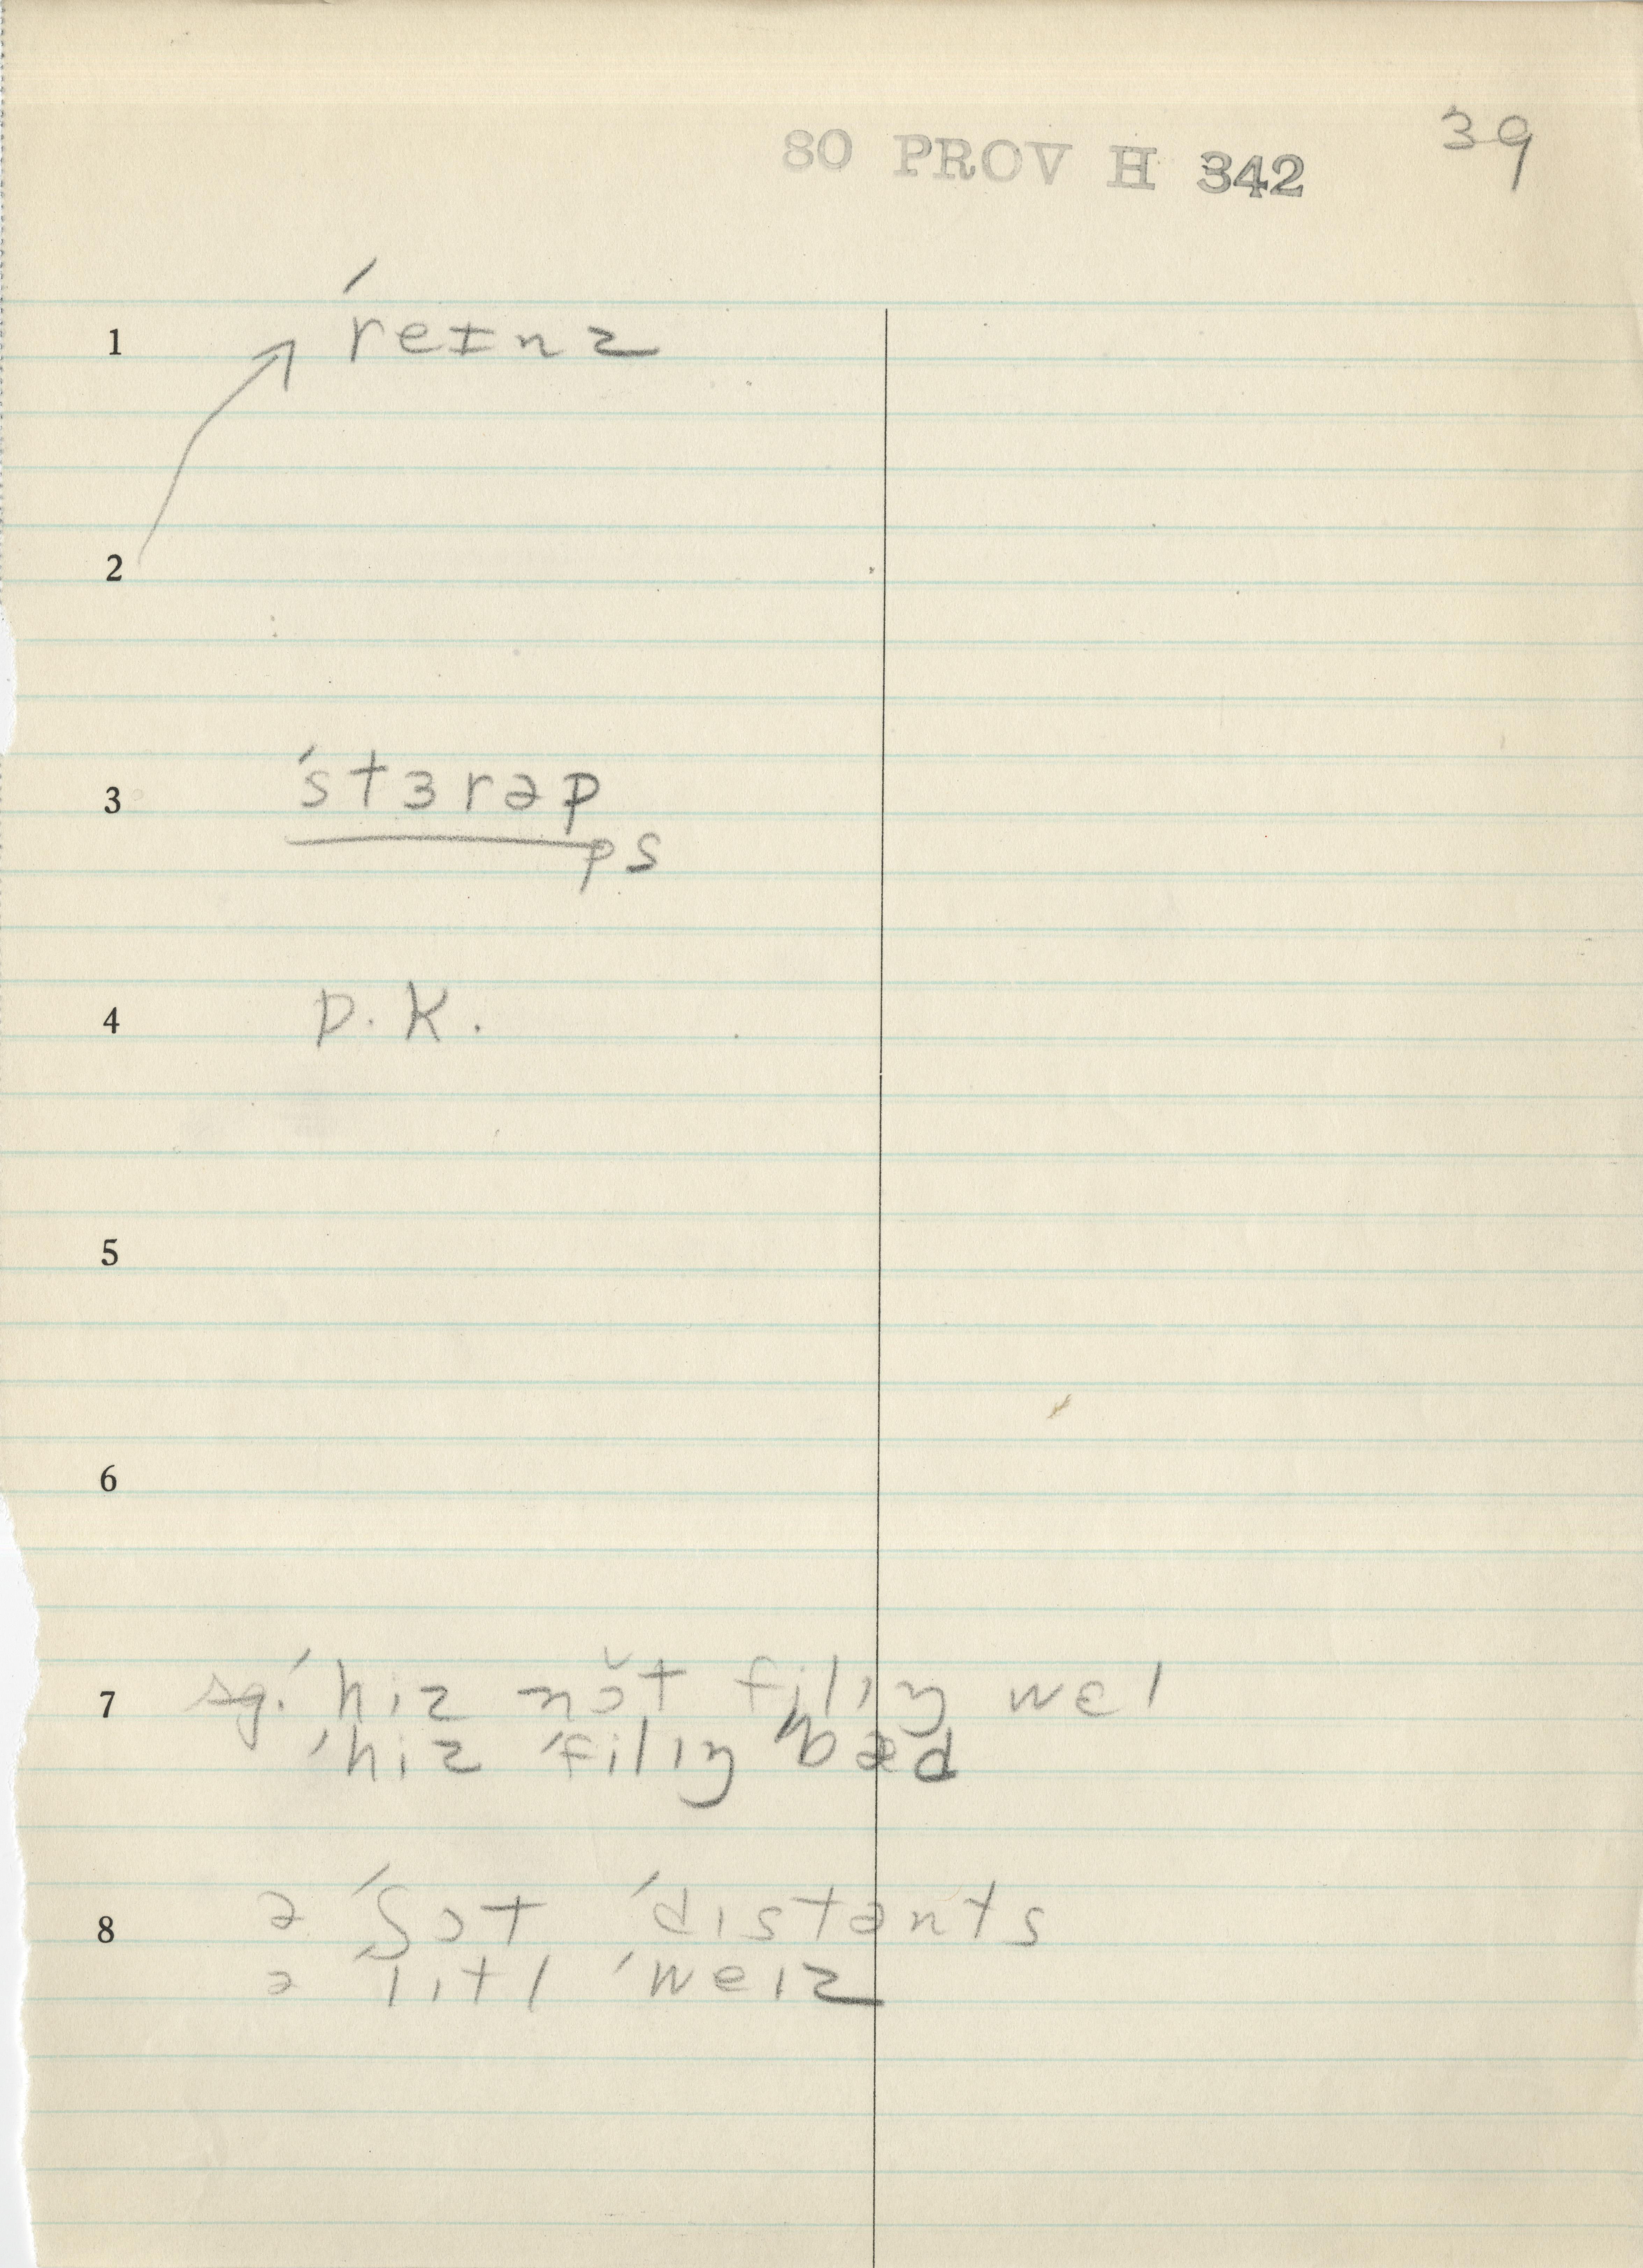 80 PROV H 342 39
1 ˈreɪnz
2
3 ˈstɜrəp
ps
4 D.K.
5
6
7 sg. ˈhiz nɔ̆t filɪŋ wɛl
ˈhiz ˈfilɪŋ bæd
8 ə ˈʃɔt ˈdɪstənts
ə ˈlɪtl ˈweɪz